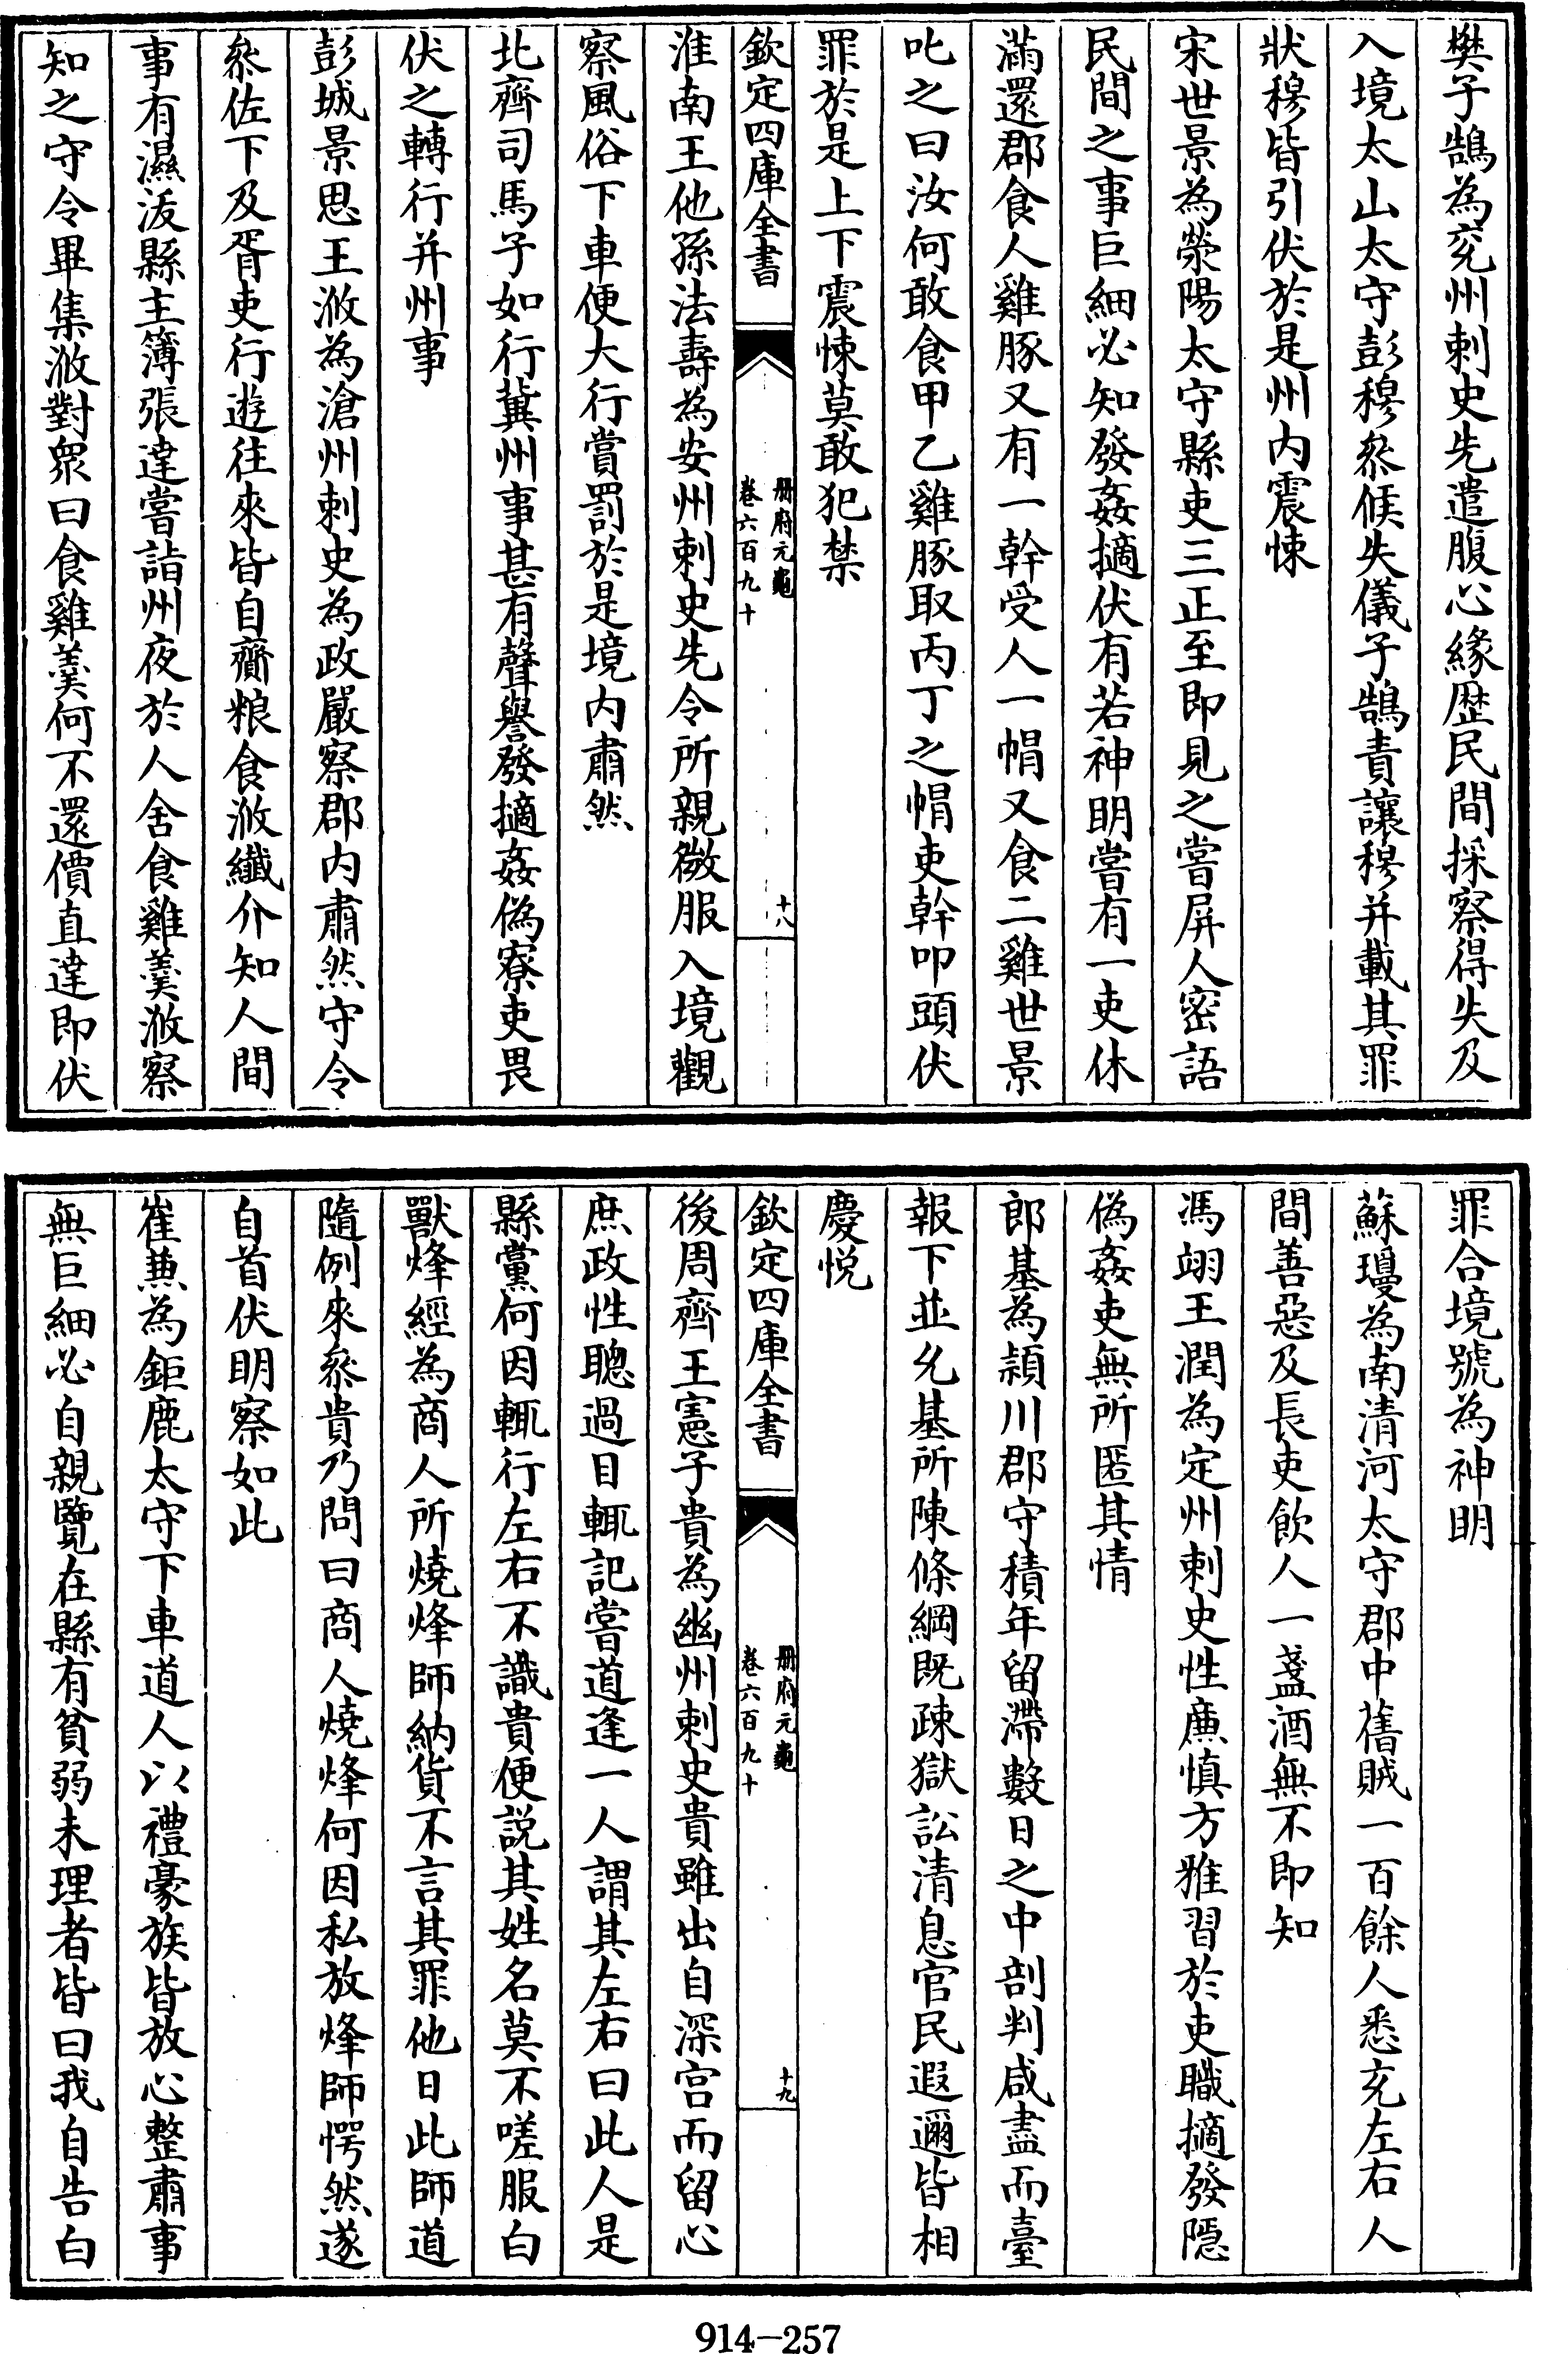 樊子鵠為兖州刺史先遣腹心緣歴民間採察得失及
入境太山太守彭穆叅候失儀子鵠責讓穆并載其罪
狀穆皆引伏於是州内震悚
宋世景為滎陽太守縣吏三正至即見之嘗屏人密語
民間之事巨細必知發姦擿伏有若神明嘗有一吏休
滿還郡食人雞豚又有一幹受人一帽又食二雞世景
叱之曰汝何敢食甲乙雞豚取丙丁之帽吏幹叩頭伏
罪於是上下震悚莫敢犯禁
欽定四庫全書
冊府元龜
卷六百九十
十八
淮南王他孫法壽為安州刺史先令所親微服入境觀
察風俗下車便大行賞罰於是境内肅然
北齊司馬子如行冀州事甚有聲譽發擿姦偽寮吏畏
伏之轉行并州事
彭城景思王浟為滄州刺史為政嚴察郡内肅然守令
叅佐下及胥吏行遊往來皆自齎粮食浟纖介知人間
事有濕沃縣主簿張達嘗詣州夜於人舍食雞羮浟察
知之守令畢集浟對衆曰食雞羮何不還價直達即伏
罪合境號為神明
蘇瓊為南清河太守郡中舊賊一百餘人悉充左右人
間善惡及長吏飲人一盞酒無不即知
馮翊王潤為定州刺史性亷慎方雅習於吏職擿發隱
偽姦吏無所匿其情
郎基為潁川郡守積年留滯數日之中剖判咸盡而臺
報下並允基所陳條綱既疎獄訟清息官民遐邇皆相
慶悦
欽定四庫全書
冊府元龜
卷六百九十
十九
後周齊王憲子貴為幽州刺史貴雖出自深宫而留心
庶政性聰過目輒記嘗道逢一人謂其左右曰此人是
縣黨何因輒行左右不識貴便説其姓名莫不嗟服白
獸烽經為商人所燒烽師納貨不言其罪他日此師道
隨例來叅貴乃問曰商人燒烽何因私放烽師愕然遂
自首伏明察如此
崔𠔥為鉅鹿太守下車道人以禮豪族皆放心整肅事
無巨細必自親覽在縣有貧弱未理者皆曰我自告白
914—257